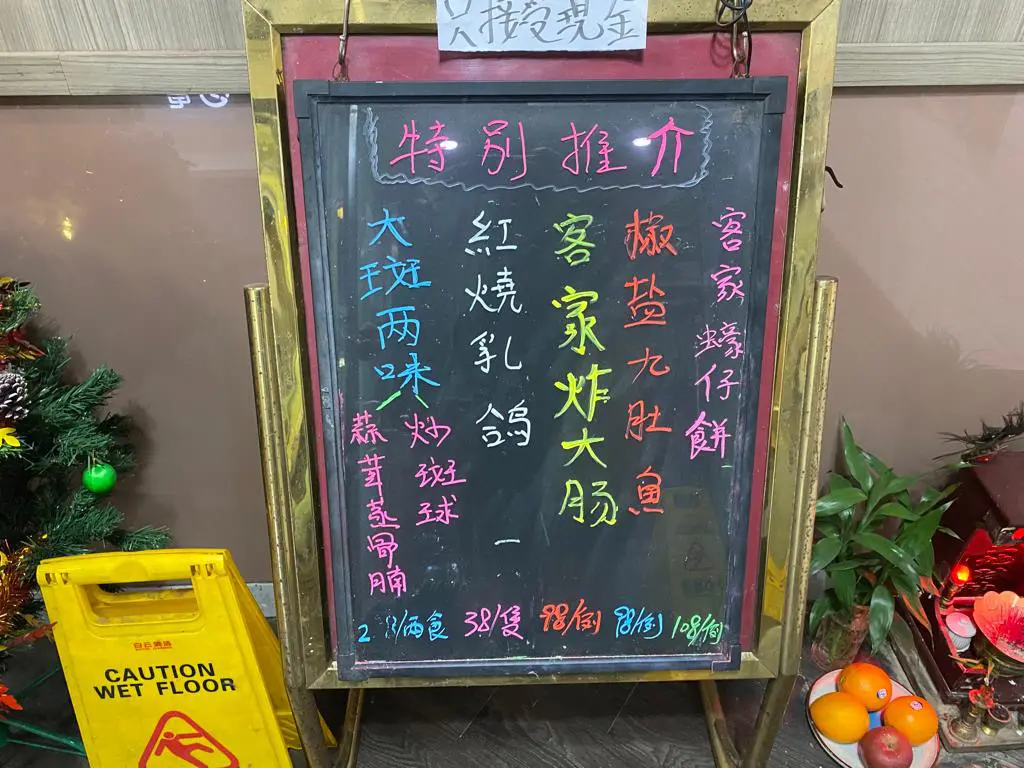 只接受現金
特别推介
客家蠔仔餅
椒盐九肚魚
客家炸大肠
紅燒乳鴿
大斑两味
炒斑球
蒜茸蒸骨腩
108/例
98/例
98/例
38/隻
8/兩食
CAUTION
WET FLOOR